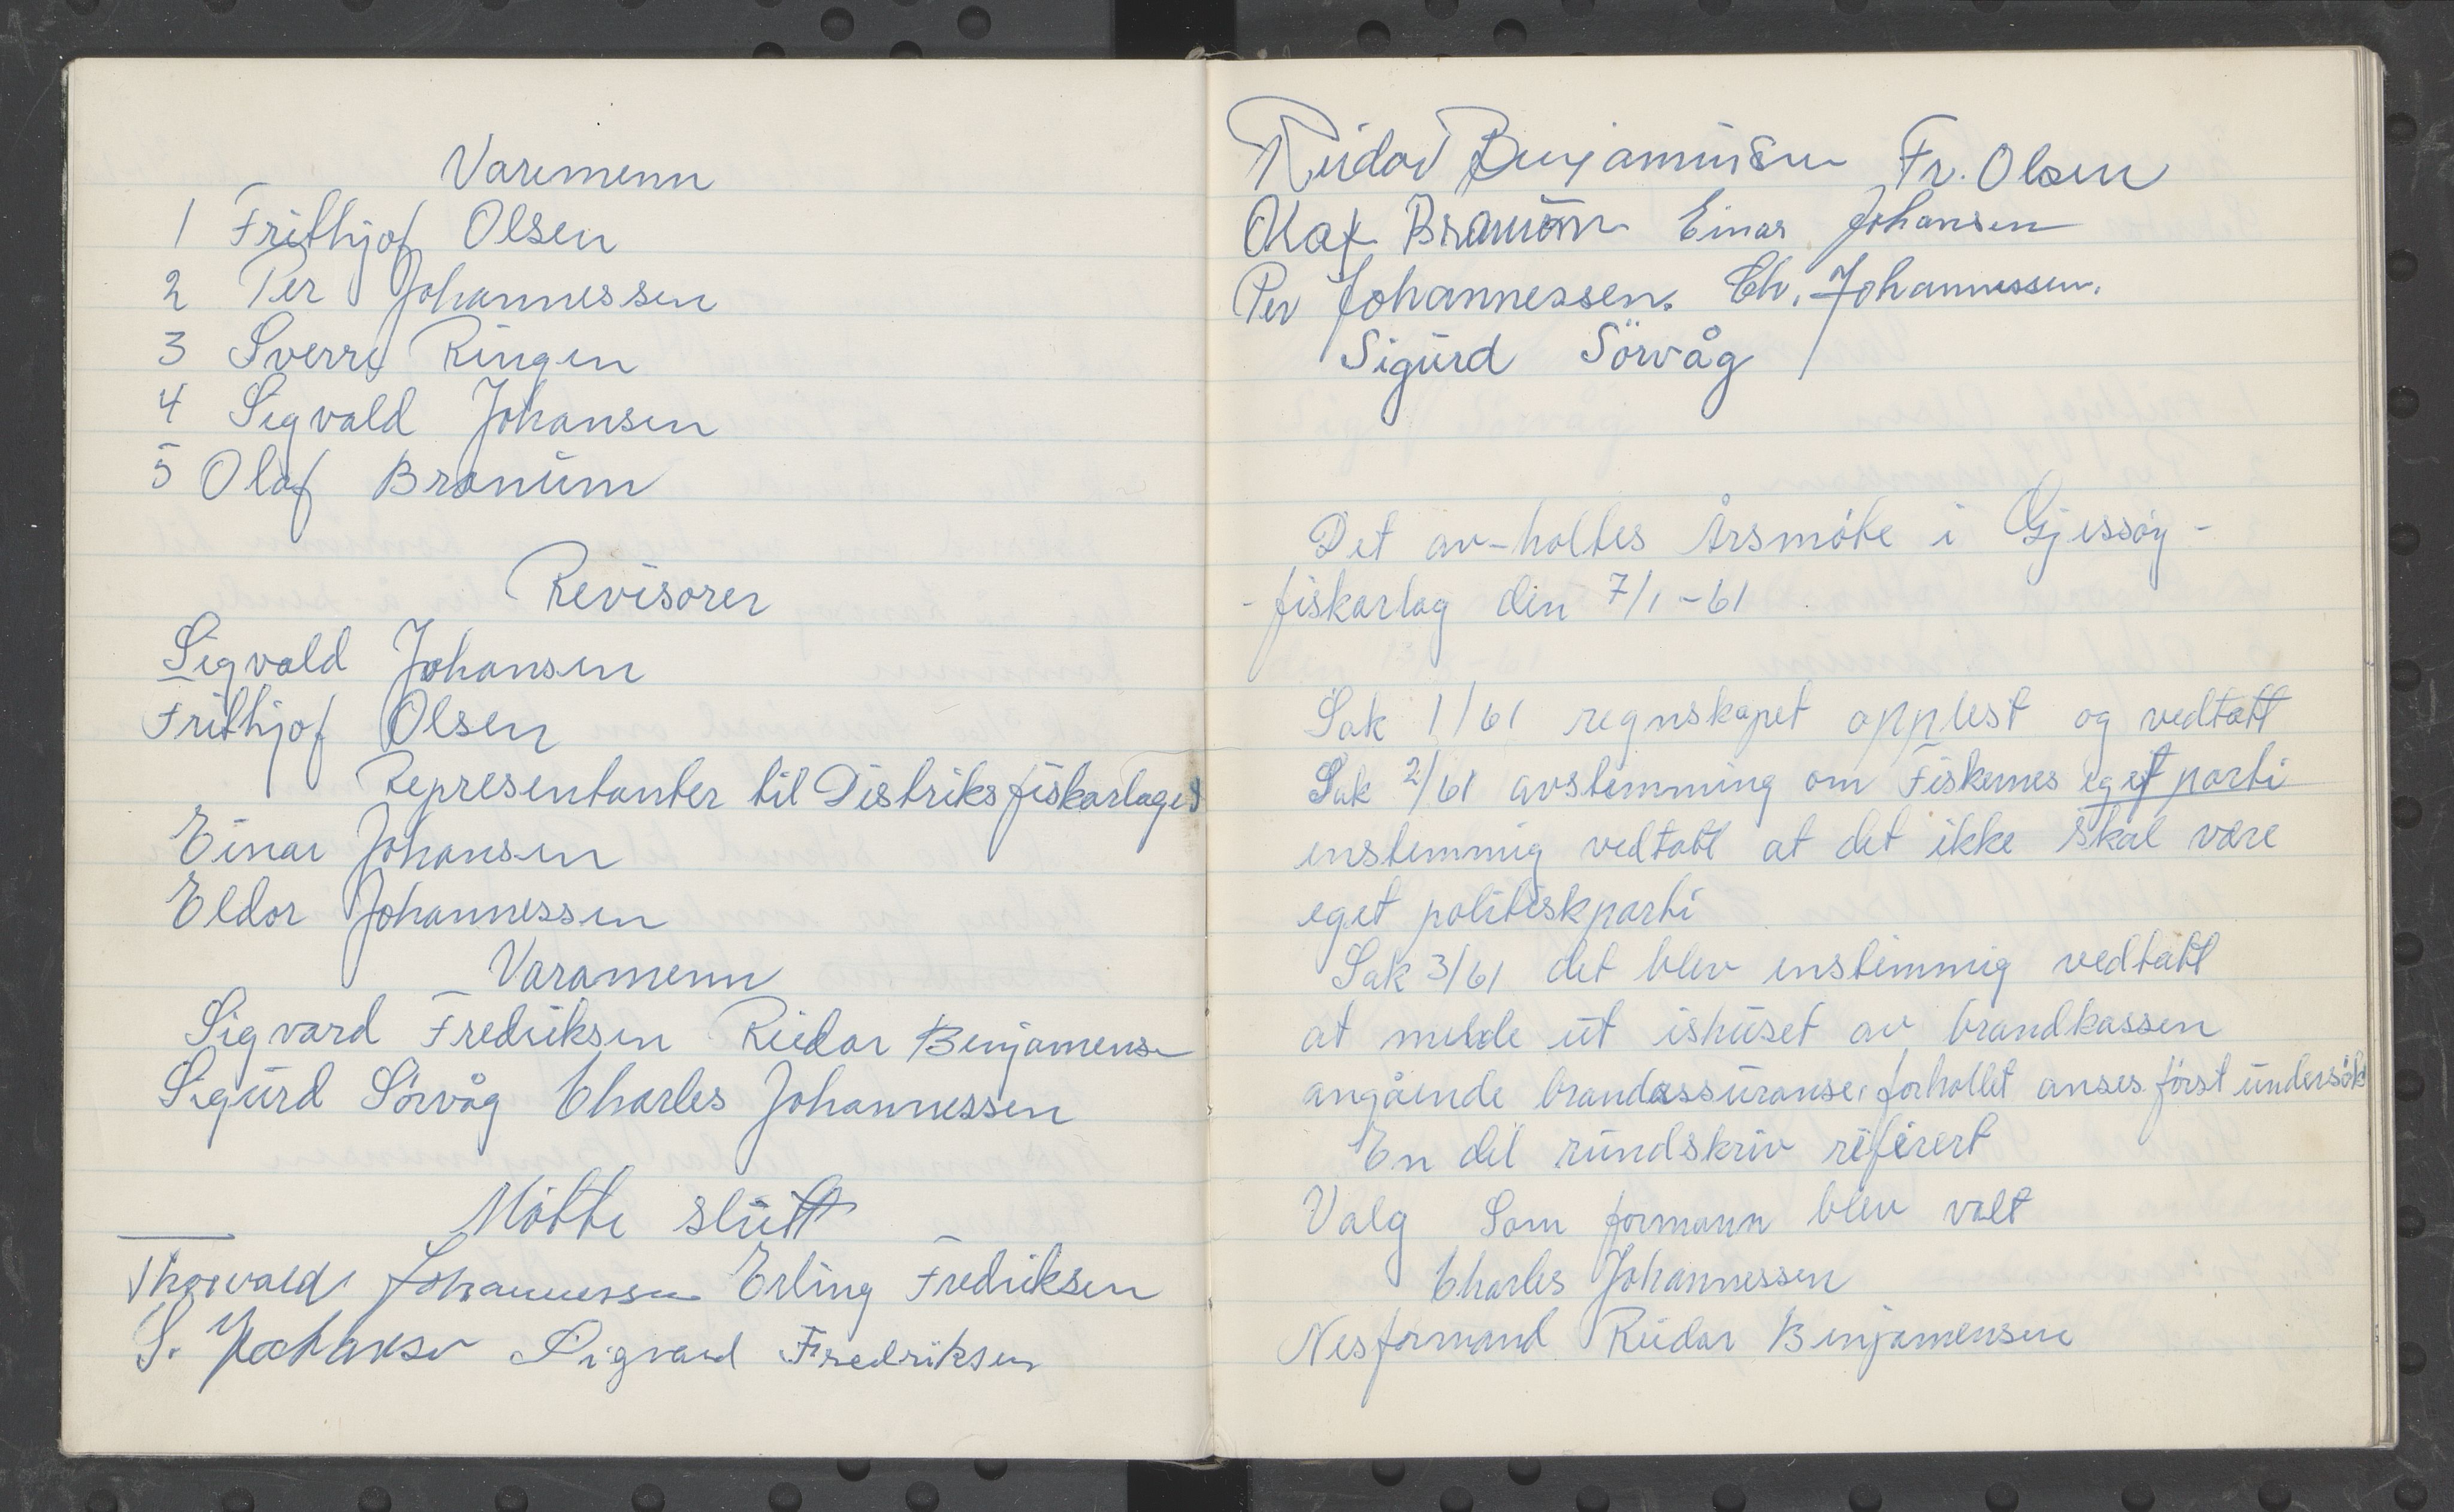 Varemenn
1 Frithjof Olsen
2 Per Johannessen
3 Sverre Ringen
4 Sigvald Johansen
5 Olaf Branum
Revisorer
Sigvald Johansen
Frithjof Olsen
Representanter til Distriks fiskarlages
Einar Johansen
Eldor Johannessen
Varamenn
Sigvard Fredriksen Reidar Benjamensen
Sigurd Sörvåg Charles Johannessen
Mötte slutt
Thorvald Johannessen Erling Fredriksen
S. Johansen Sigvard Fredriksen
Reidar Benjaminsen Fr. Olsen
Olaf Branum Einar Johansen
Per Johannessen. Ch. Johannessen.
Sigurd Sörvåg
Det av-holtes Årsmöte i Gjessöy-
-fiskarlag den 7/1-61
Sak 1/61 regnskapet opplest og vedtatt
Sak 2/61 avstemming om Fiskernes eget parti
enstemmig vedtatt at det ikke skal være
eget politisk parti
Sak 3/61 det blev enstemmig vedtatt
at melde ut ishuset av brandkassen
angående brandassuranse, forhollet anses först undersökt
En del rundskriv referert
Valg Som formann blev valt
Charles Johannessen
Nesformand Reidar Benjamensen